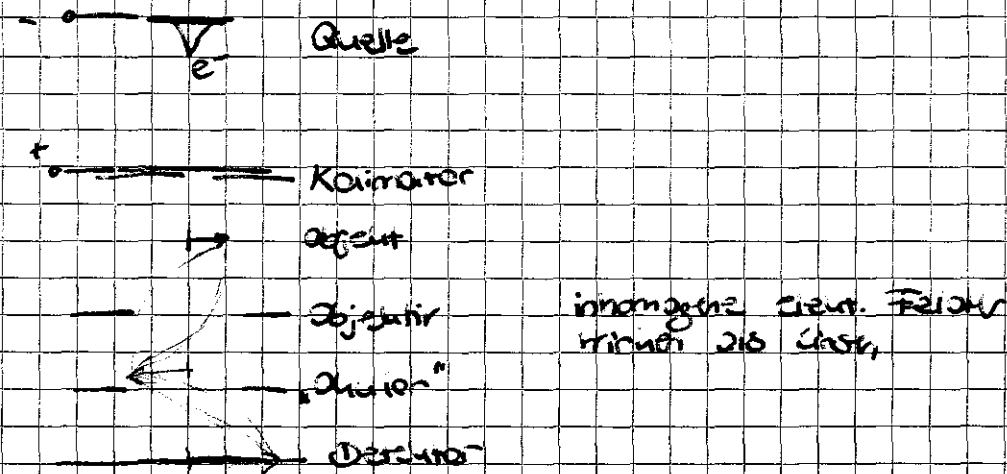 -
Quelle
e⁻
+
Kollimator
Objekt
Objektiv
inhomogene elektr. Felder
wirken als Linse,
"Okular"
Detektor